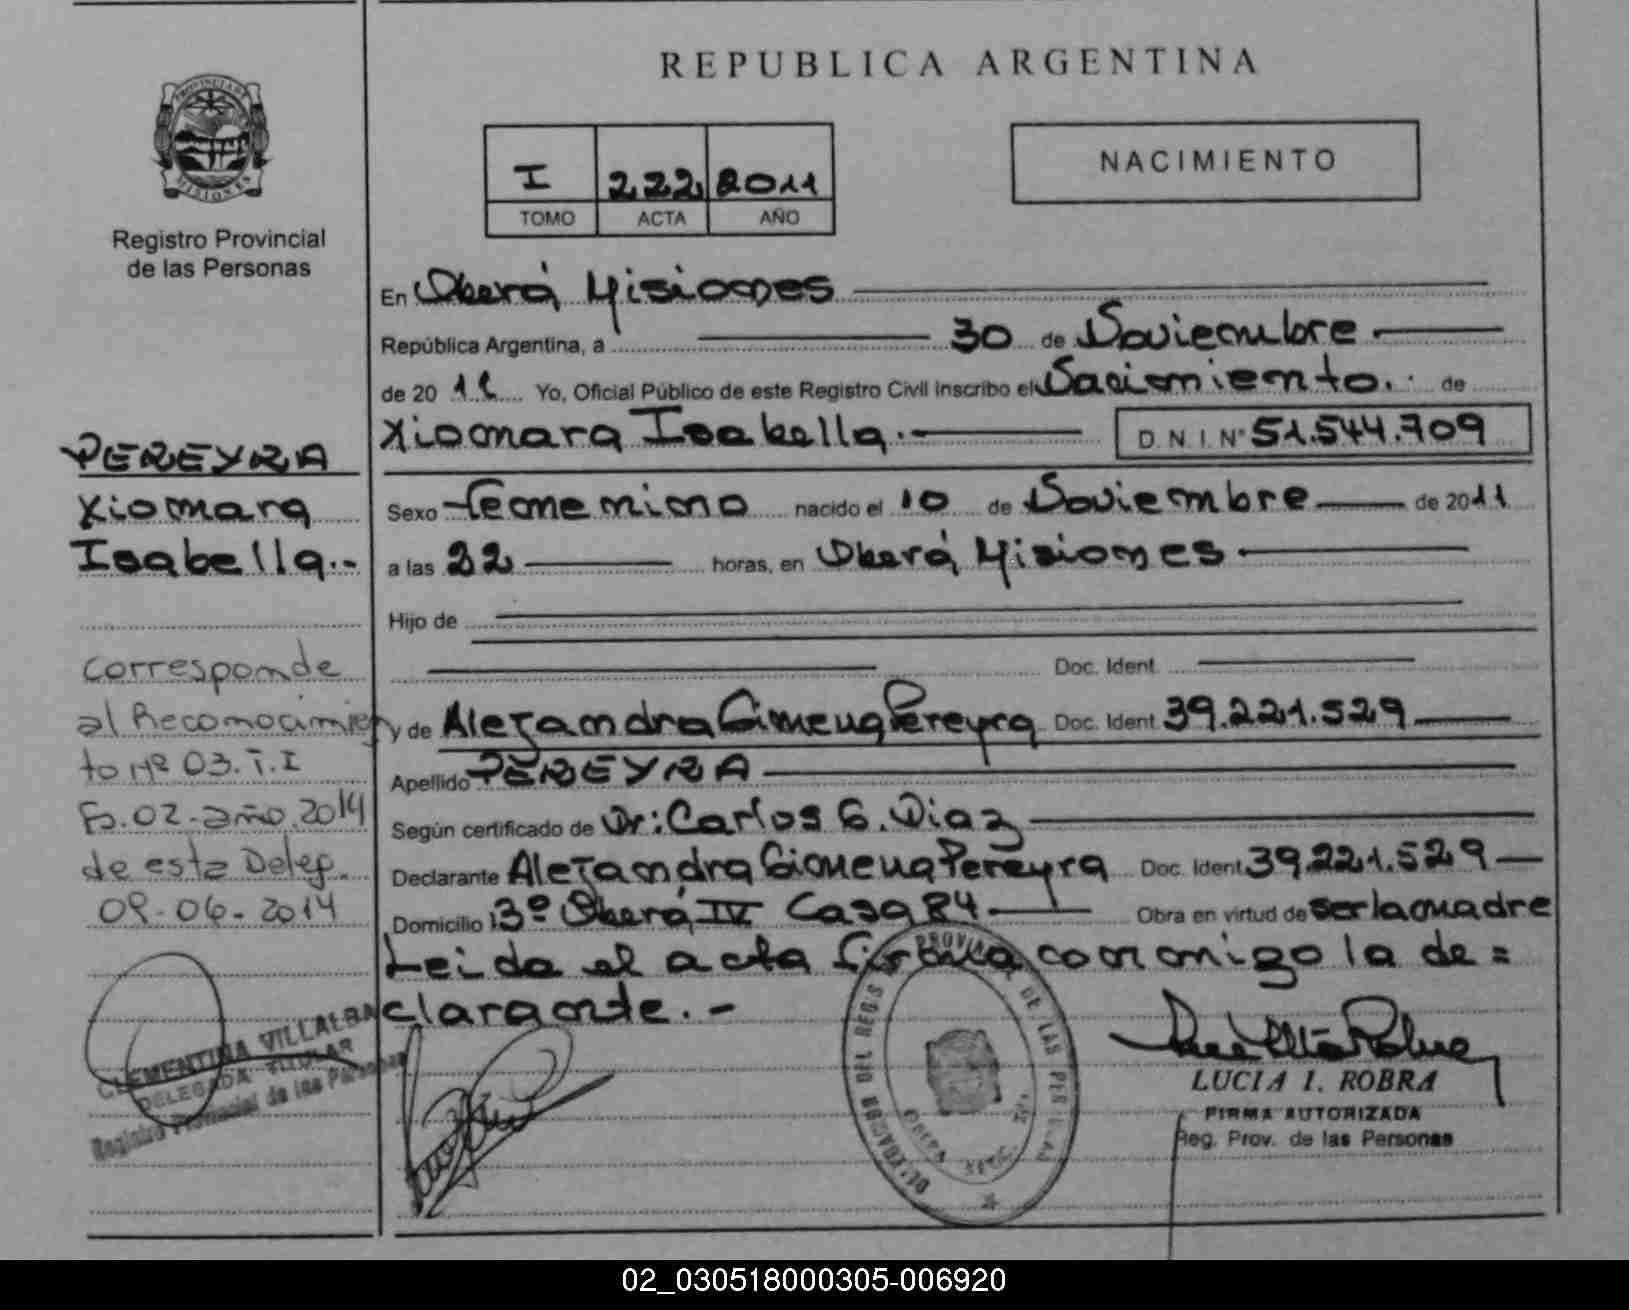 REPUBLICA ARGENTINA
PROVINCIA DE
MISIONES
Registro Provincial
de las Personas
I 222 2011
TOMO ACTA AÑO
NACIMIENTO
En Oberá Misiones
República Argentina, a 30 de Noviembre
de 20 11 Yo, Oficial Público de este Registro Civil inscribo el Nacimiento. de
Xiomara Isabella.- D.N.I. Nº 51.544.709
Sexo Femenino nacido el 10 de Noviembre de 2011
a las 22 horas, en Oberá Misiones
Hijo de
Doc. Ident.
y de Alejandra Gimena Pereyra Doc. Ident. 39.221.529
Apellido PEREYRA
Según certificado de Dr: Carlos G. Diaz
Declarante Alejandra Gimena Pereyra Doc. Ident. 39.221.529
Domicilio Bº Oberá IV Casa 84 Obra en virtud de ser la madre
Leida el acta firma conmigo la de=
clarante.-
PEREYRA
Xiomara
Isabella.-
corresponde
al Reconocimien
to Nº 03. T. I
Fo. 02 - año 2014
de esta Deleg.
09-06-2014
CLEMENTINA VILLALBA
DELEGADA TITULAR
Registro Provincial de las Personas
LUCIA I. ROBRA
FIRMA AUTORIZADA
Reg. Prov. de las Personas
02_030518000305-006920